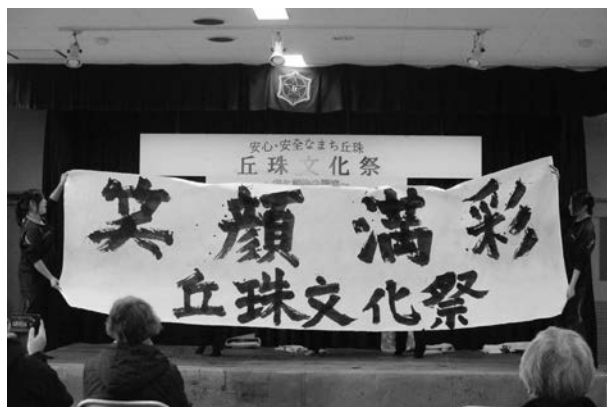 安心・安全なまち丘珠
丘珠文化祭
笑顔満彩
丘珠文化祭